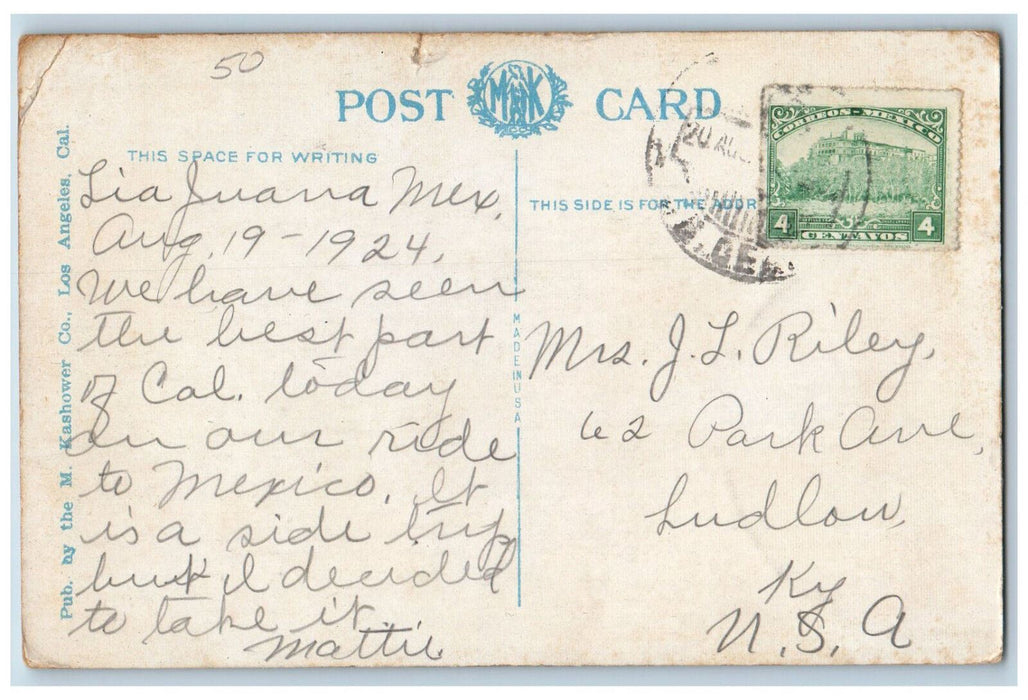 50
POST CARD
MHK
THIS SPACE FOR WRITING
Tia Juana Mex.
Aug. 19-1924.
We have seen
the best part
of Cal. today
in our ride
to Mexico. It
is a side trip
but I decided
to take it.
Mattie
Pub. by the M. Kashower Co., Los Angeles, Cal.
MADE IN USA
THIS SIDE IS FOR THE ADDR
20 AUG
CORREOS-MEXICO
4 CENTAVOS 4
Mrs. J. L. Riley,
62 Park Ave,
Ludlow,
Ky
U.S.A